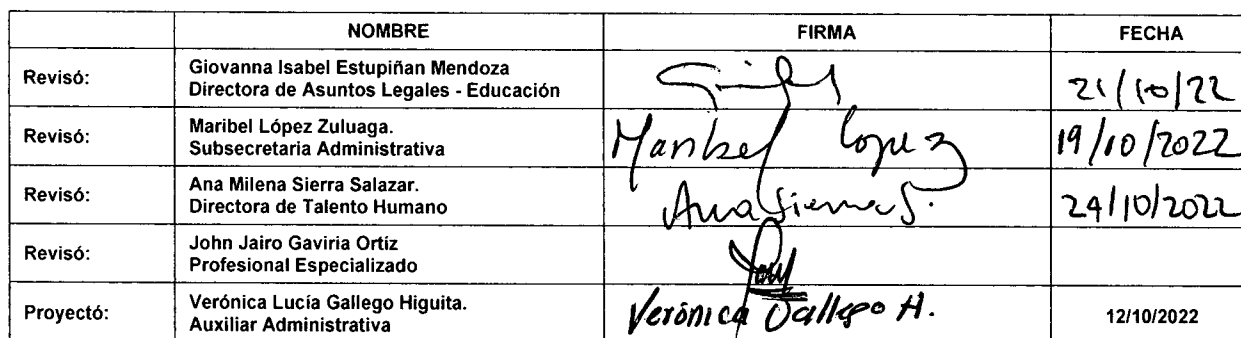 NOMBRE FIRMA FECHA
Revisó: Giovanna Isabel Estupiñan Mendoza
Directora de Asuntos Legales - Educación 21/10/22
Revisó: Maribel López Zuluaga.
Subsecretaria Administrativa Maribel Lopez 19/10/2022
Revisó: Ana Milena Sierra Salazar.
Directora de Talento Humano Ana Sierra S. 24/10/2022
Revisó: John Jairo Gaviria Ortíz
Profesional Especializado
Proyectó: Verónica Lucía Gallego Higuita.
Auxiliar Administrativa Verónica Gallego H. 12/10/2022